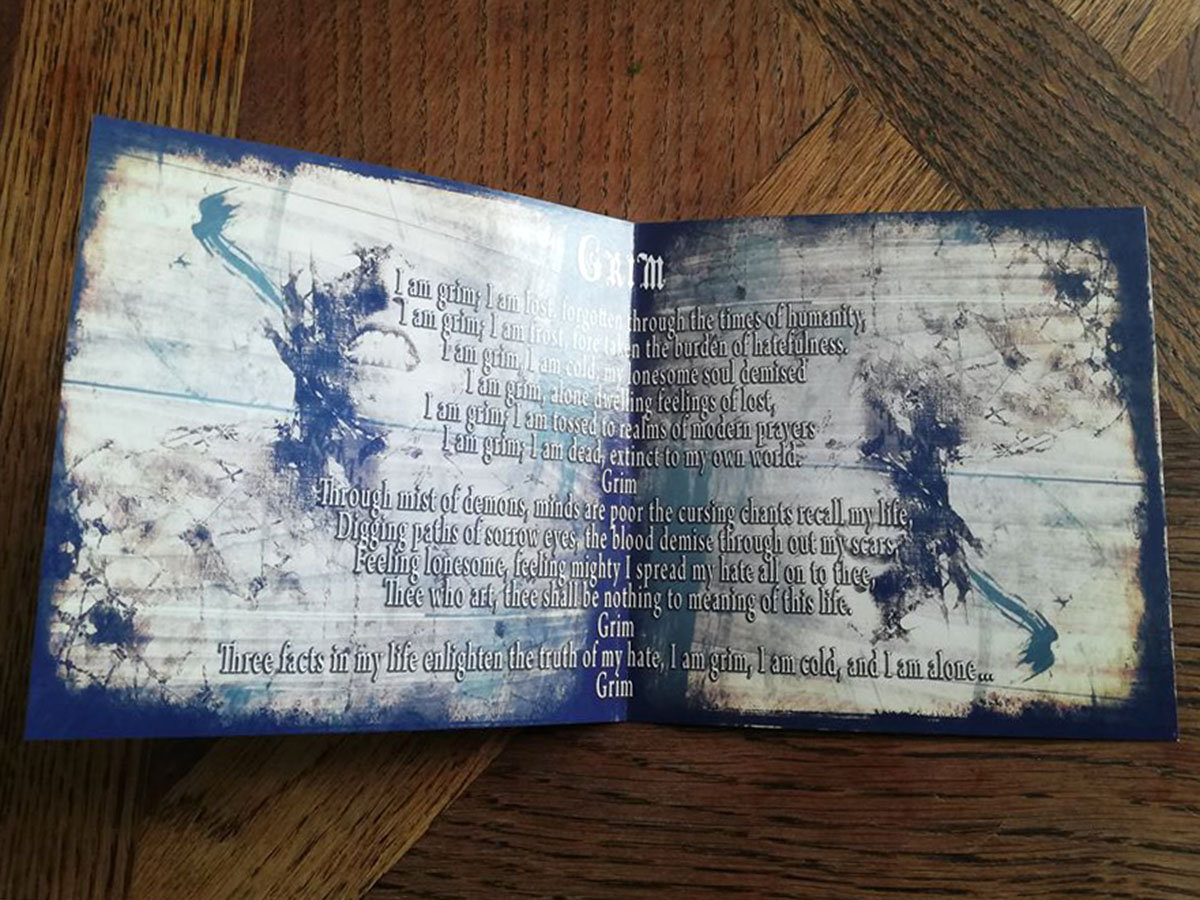 Grim
I am grim; I am lost, forgotten through the times of humanity,
I am grim; I am frost, fore taken the burden of hatefulness.
I am grim, I am cold, my lonesome soul demised
I am grim, alone dwelling feelings of lost,
I am grim; I am tossed to realms of modern prayers
I am grim; I am dead, extinct to my own world.
Grim
Through mist of demons, minds are poor the cursing chants recall my life,
Digging paths of sorrow eyes, the blood demise through out my scars,
Feeling lonesome, feeling mighty I spread my hate all on to thee,
Thee who art, thee shall be nothing to meaning of this life.
Grim
Three facts in my life enlighten the truth of my hate, I am grim, I am cold, and I am alone...
Grim